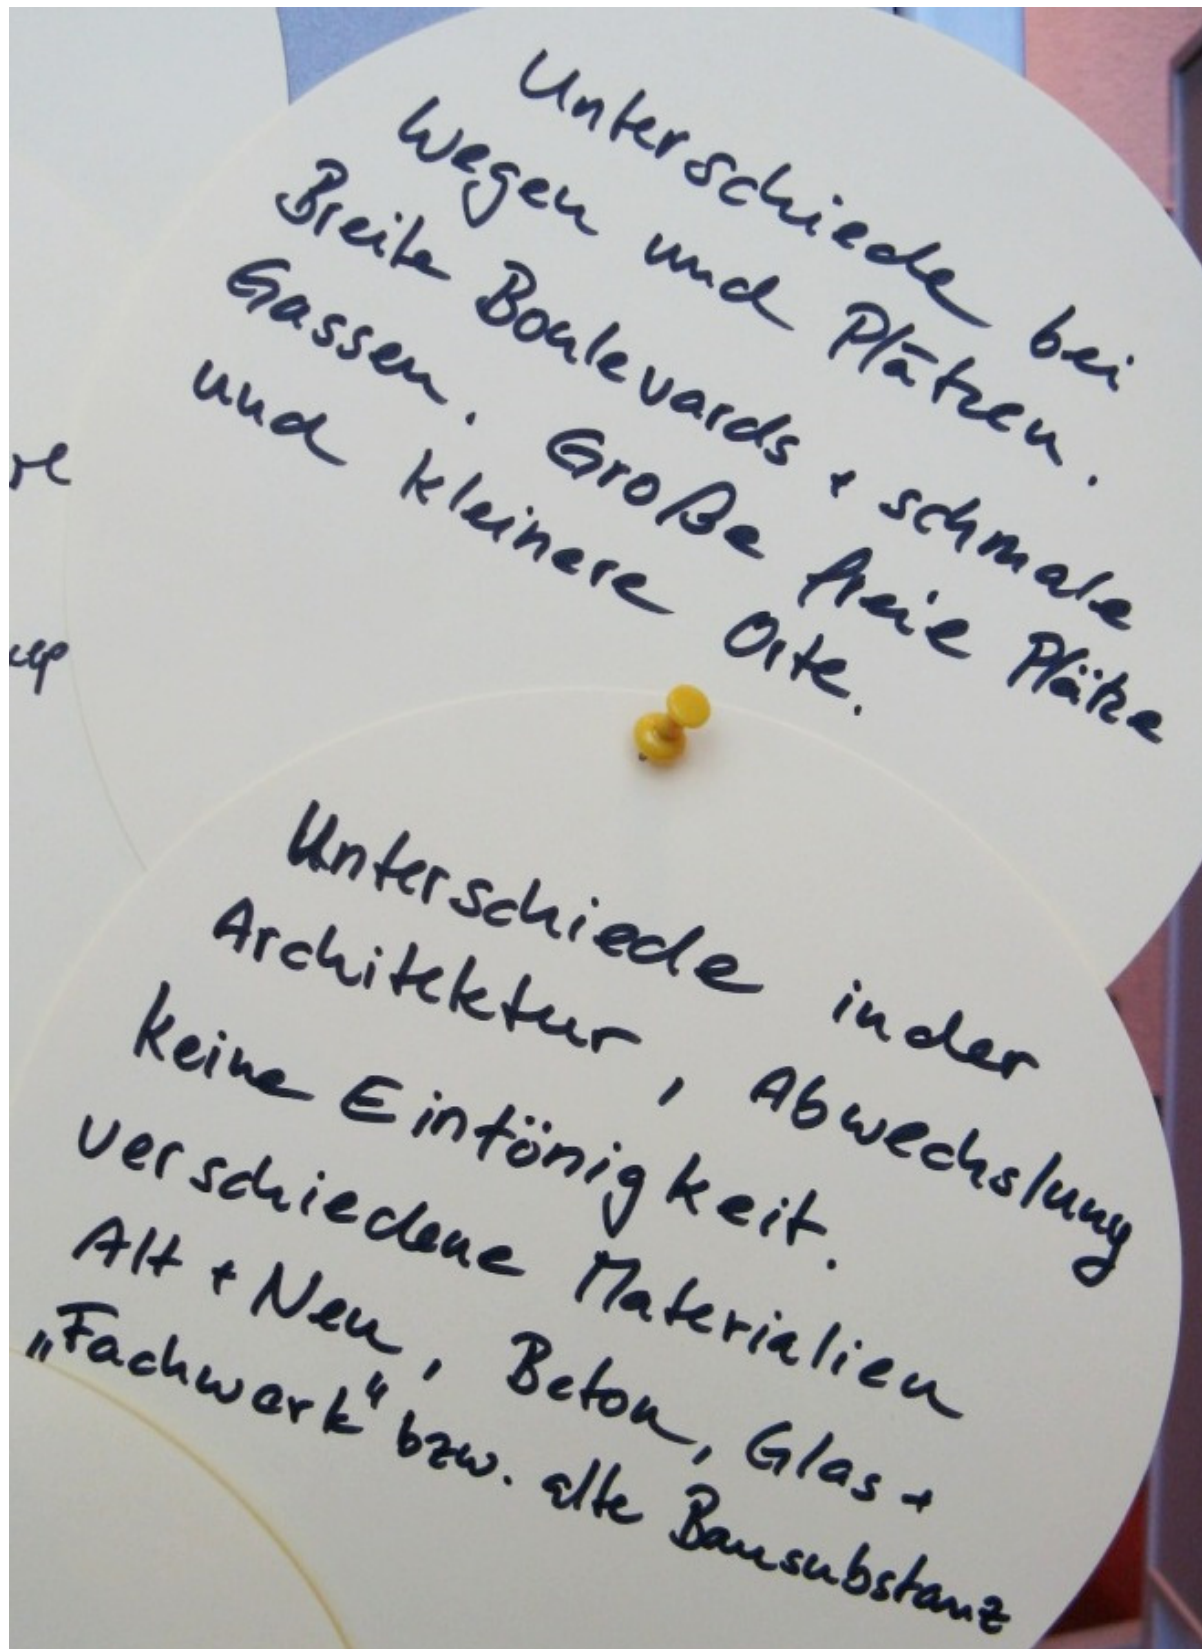 Unterschiede bei
Wegen und Plätzen.
Breite Boulevards + schmale
Gassen. Große freie Plätze
und kleinere Orte.
Unterschiede in der
Architektur, Abwechslung
keine Eintönigkeit.
verschiedene Materialien
Alt + Neu, Beton, Glas +
„Fachwerk“ bzw. alte Bausubstanz